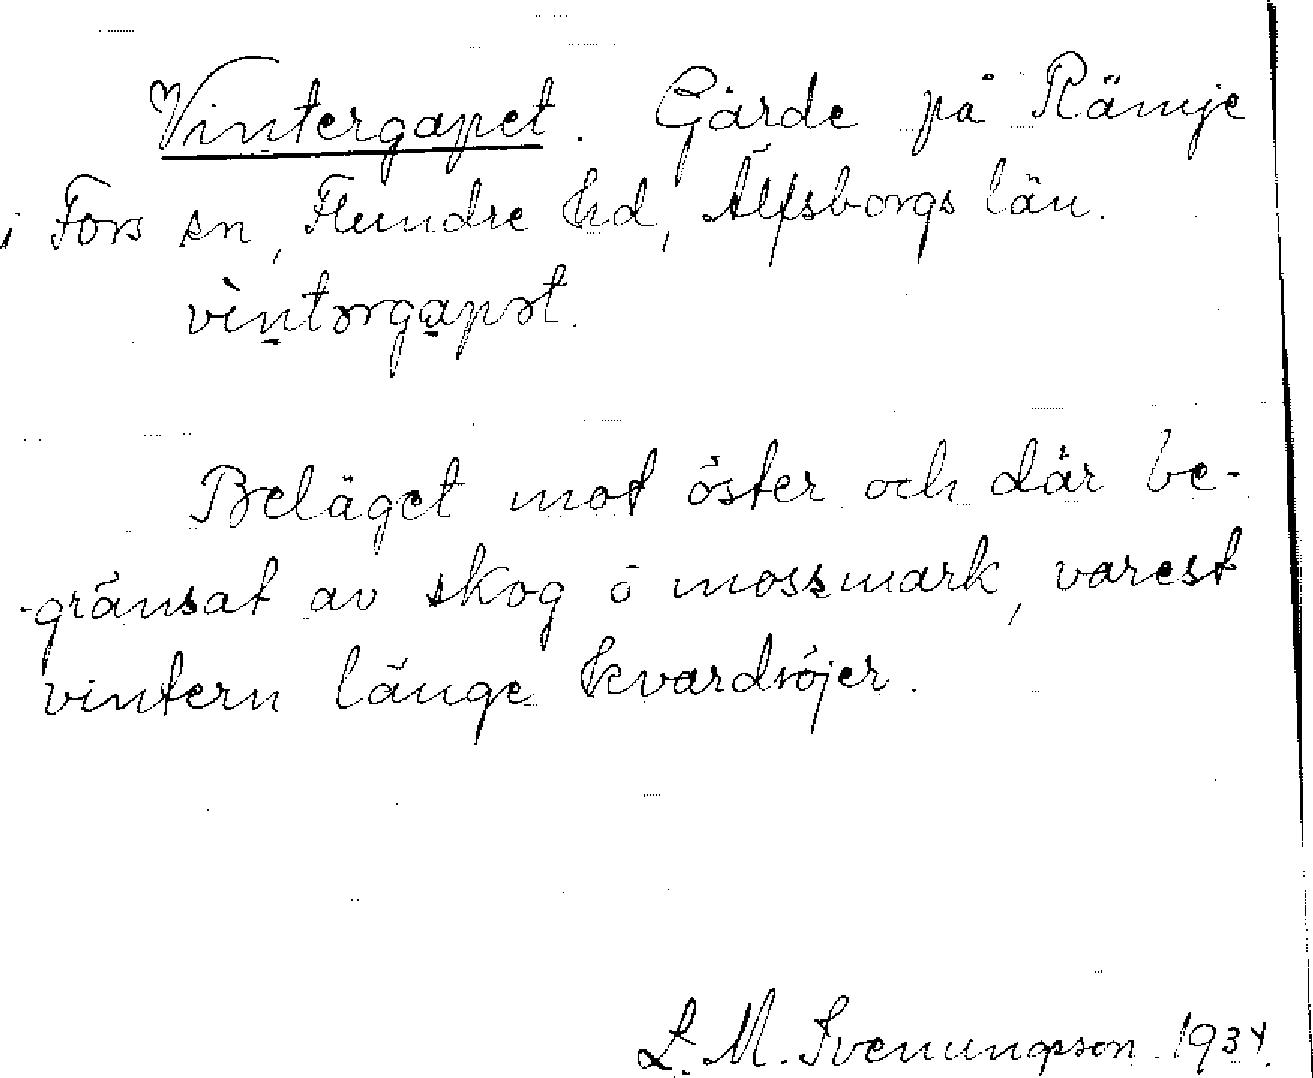 Vintergapet. Gärde på Rämje
i Fors sn, Flundre hd, Älfsborgs län.
vìntərgapət.
Beläget mot öster och där be-
gränsat av skog o mossmark, varest
vintern länge kvardröjer.
L. M. Svenungsson 1934.